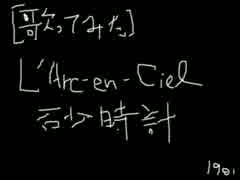 [歌ってみた]
L'Arc-en-Ciel
砂時計
1981